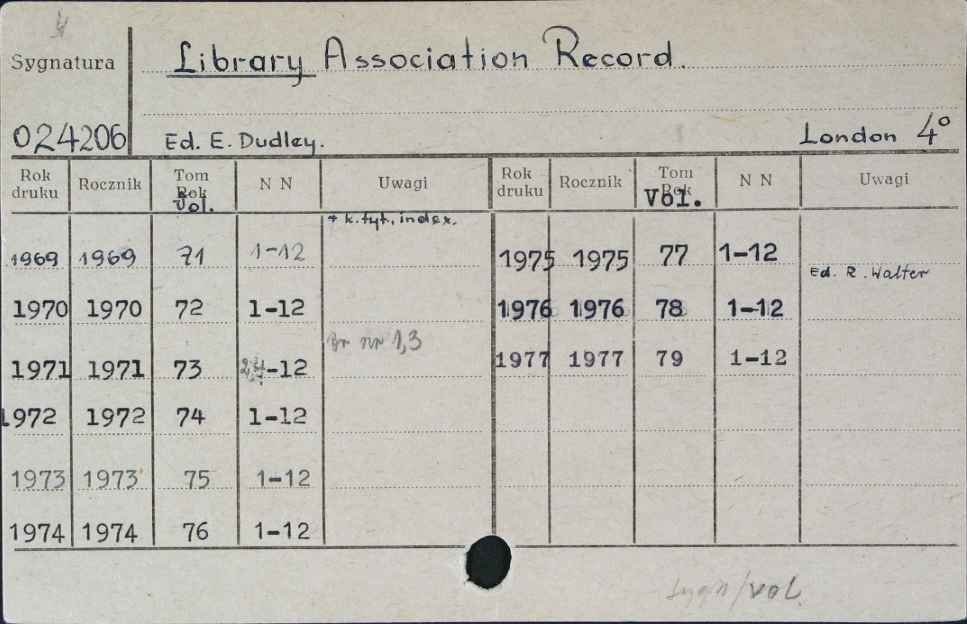 Sygnatura
Library Association Record.
024206
Ed. E. Dudley.
London 4°
Rok druku Rocznik Tom Rok Vol. N N Uwagi Rok druku Rocznik Tom Rok Vol. N N Uwagi
+ k. tyt., index.
1969 1969 71 1-12 1975 1975 77 1-12
Ed. R. Walter
1970 1970 72 1-12 1976 1976 78 1-12
Br nr 1,3
1971 1971 73 -12 1977 1977 79 1-12
1972 1972 74 1-12
1973 1973 75 1-12
1974 1974 76 1-12
sygn/vol.